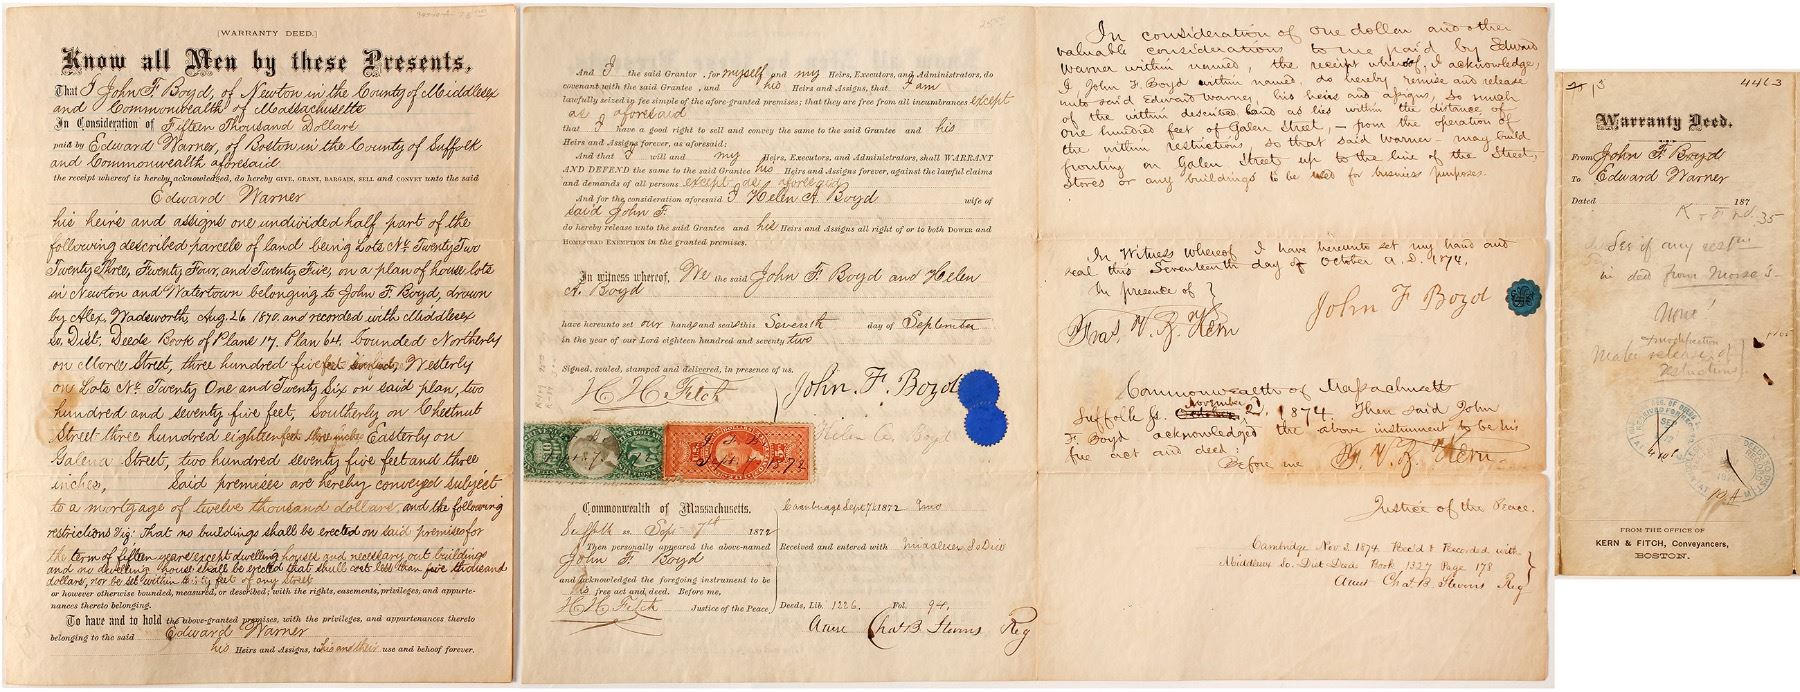 [WARRANTY DEED.]
Know all Men by these Presents,
That I John F. Boyd, of Newton in the County of Middlesex
and Commonwealth of Massachusetts
In Consideration of Fifteen Thousand Dollars
paid by Edward Warner, of Boston in the County of Suffolk
and Commonwealth aforesaid
the receipt whereof is hereby acknowledged, do hereby GIVE, GRANT, BARGAIN, SELL and CONVEY unto the said
Edward Warner
his heirs and assigns one undivided half part of the
following described parcels of land being Lots No. Twenty Two
Twenty Three, Twenty Four, and Twenty Five, on a plan of house lots
in Newton and Watertown belonging to John F. Boyd, drawn
by Alex. Wadsworth, Aug. 26, 1870. and recorded with Middlesex
So. Dist. Deeds Book of Plans 17. Plan 64. bounded Northerly
on Morse Street, three hundred five feet six inches, Westerly
on Lots No. Twenty One and Twenty Six on said plan, two
hundred and seventy five feet, Southerly on Chestnut
Street three hundred eighteen feet three inches Easterly on
Galena Street, two hundred seventy five feet and three
inches, Said premises are hereby conveyed subject
to a mortgage of twelve thousand dollars, and the following
restrictions viz: That no buildings shall be erected on said premises for
the term of fifteen years except dwelling houses and necessary out buildings
and no dwelling house shall be erected that shall cost less than five thousand
dollars, nor be set within thirty feet of any Street
or however otherwise bounded, measured, or described; with the rights, easements, privileges, and appurte-
nances thereto belonging.
To have and to hold the above-granted premises, with the privileges, and appurtenances thereto
belonging to the said Edward Warner
his Heirs and Assigns, to his and their use and behoof forever.
And I the said Grantor, for myself and my Heirs, Executors, and Administrators, do
covenant with the said Grantee, and his Heirs and Assigns, that I am
lawfully seized in fee simple of the afore-granted premises; that they are free from all incumbrances except
as aforesaid
that I have a good right to sell and convey the same to the said Grantee and his
Heirs and Assigns forever, as aforesaid;
And that I will and my Heirs, Executors, and Administrators, shall WARRANT
AND DEFEND the same to the said Grantee his Heirs and Assigns forever, against the lawful claims
and demands of all persons except as aforesaid
And for the consideration aforesaid I Helen A. Boyd wife of
said John F.
do hereby release unto the said Grantee and his Heirs and Assigns all right of or to both DOWER and
HOMESTEAD EXEMPTION in the granted premises.
In witness whereof, We the said John F. Boyd and Helen
A. Boyd
have hereunto set our hands and seals this Seventh day of September
in the year of our Lord eighteen hundred and seventy two
Signed, sealed, stamped and delivered, in presence of us.
H. H. Fitch
John. F. Boyd
Helen A. Boyd
Commonwealth of Massachusetts.
Suffolk ss. Sept 7th 1872
Then personally appeared the above-named
John F. Boyd
and acknowledged the foregoing instrument to be
his free act and deed. Before me,
H. H. Fitch Justice of the Peace
Cambridge Sept 7th 1872
Received and entered with Middlesex So Dist
Deeds, Lib. 1226. Fol. 94.
Attest Chas B. Stevens Reg
In consideration of one dollar and other
valuable considerations to me paid by Edward
Warner within named, the receipt whereof, I acknowledge,
I John F. Boyd within named, do hereby remise and release
unto said Edward Warner, his heirs and assigns, so much
of the within described land as lies within the distance of
one hundred feet of Galen Street, – from the operation of
the within restrictions, so that said Warner – may build
fronting on Galen Street up to the line of the Street,
Stores or any buildings to be used for business purposes.
In Witness whereof I have hereunto set my hand and
seal this Seventeenth day of October A. D. 1874.
In presence of }
John F Boyd
Commonwealth of Massachusetts
Suffolk ss. October, November 2d. 1874. Then said John
F. Boyd acknowledged the above instrument to be his
free act and deed:
Before me
Justice of the Peace.
Cambridge Nov 3. 1874 Rec'd & Recorded with
Middlesex So. Dist Deeds Book 1327 Page 178
Attest Chas B Stevens Reg
4463
Warranty Deed.
From John F. Boyd
To Edward Warner
Dated 187
See if any
in deed from Morse
None!
modification
Make release of
restrictions
FROM THE OFFICE OF
KERN & FITCH, Conveyancers,
BOSTON.